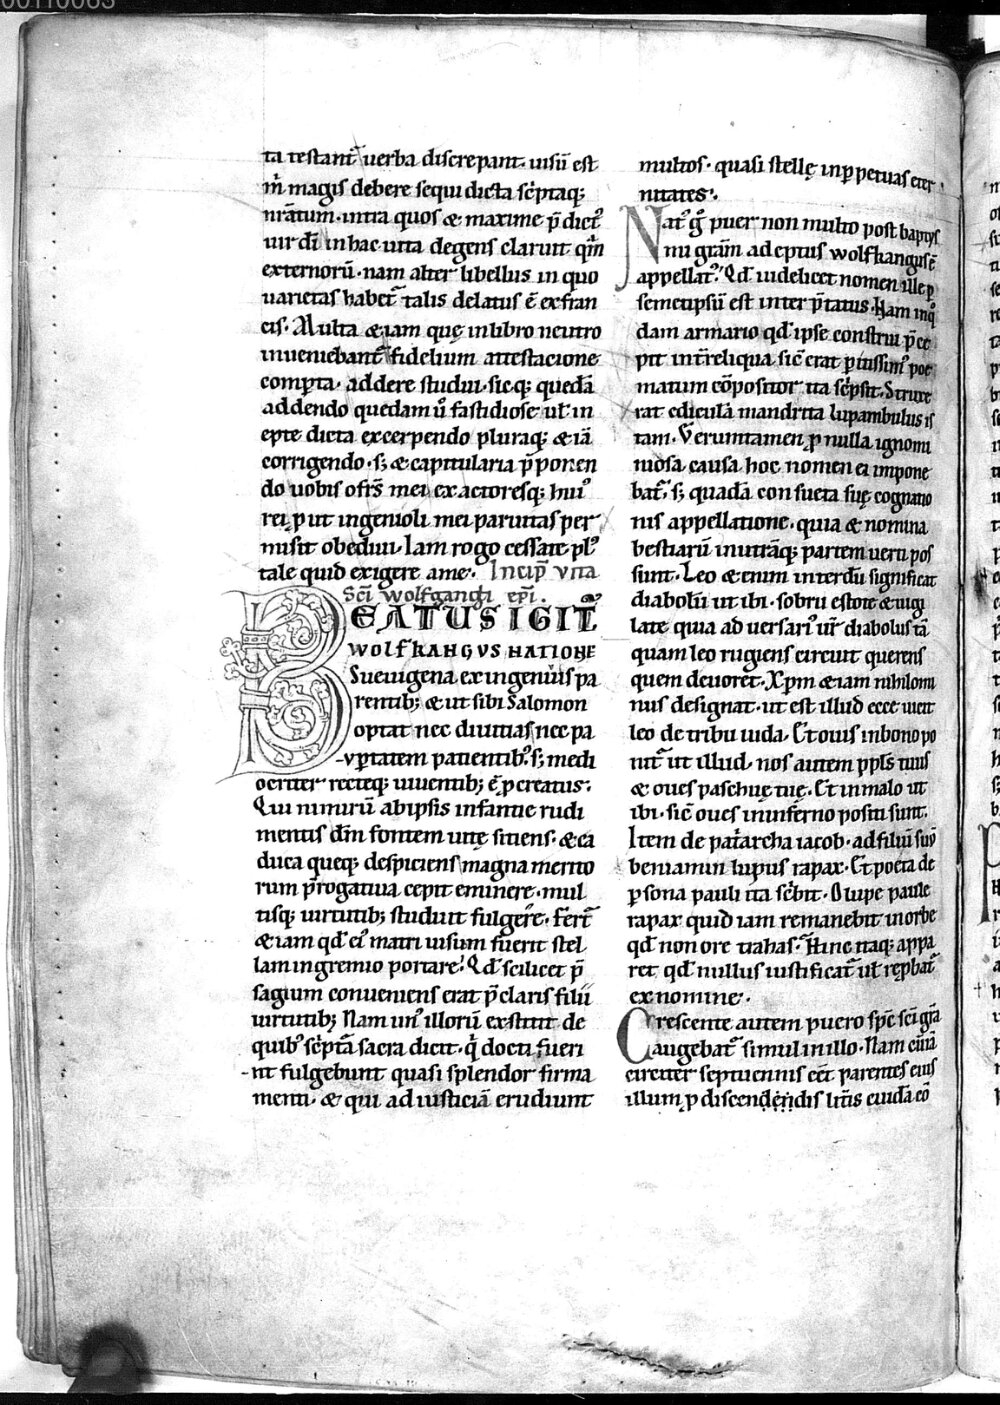 00110063
ta testant᷑ uerba discrepant. uisū est
m̄ magis debere sequi dicta sc̄ptaq;
nr̄atum. intra quos & maxime p̄dict᷒
uir dī in hac uita degens claruit qm̄
externorū. nam alter libellus in quo
uarietas habet᷑ talis delatus ē ex fran
cis. Multa &iam quę in libro neutro
inueniebant᷑ fidelium attestacione
comp̱ta. addere studui. sicq; quedā
addendo quedam ū fastidiose ut̄ in
epte dicta excerpendo pluraq; &iā
corrigendo. s; & capitularia p̄ponen
do uobis ofrs̄ mei exactoresq; hui᷒
rei, put ingenioli mei paruitas per
misit obediui. Iam rogo cessate pl᷒
tale quid exigere a me. Incip̄ vita
Sc̄i wolfgangi ep̄i.
BEATUS IGIT᷑
WOLFKANGVS NATIONE
Sueuigena ex ingenuis pa
rentib; & ut sibi Salomon
optat nec diuitias nec pa
-vp̱tatem patientib᷒. s; medi
ocriter recteq; uiuentib; ē p̱creatus.
Qui nimirū ab ipsis infantie rudi
mentis dm̄ fontem uitę sitiens. & ca
duca queq; despiciens magna merito
rum p̄rogatiua cepit eminere. mul
tisq; uirtutib; studuit fulgere. Fert᷑
&iam qd̄ ei᷒ matri uisum fuerit stel
lam in gremio portare. Qd̄ scilicet p̄
sagium conueniens erat p̄claris filii
uirtutib; Nam un᷒ illorū exstitit de
quib᷒ sc̄pta sacra dicit. q̄ docti fueri
-nt fulgebunt quasi splendor firma
menti. & qui ad iusticiā erudiunt
multos. quasi stellę in p̱petuas eter
nitates.
Nat᷒ g̊ puer non multo post baptys
mi gr̄am adeptus wolfkangus ē
appellat᷒. Qd̄ uidelicet nomen ille p̱
semetipsū est interp̄tatus. Nam in q᷒
dam armario qd̄ ipse construi p̄ce
pit int̄ reliqua sic̄ erat p̱itissim᷒ poe
matum cōpositor ita sc̄psit. Struxe
rat ediculā mandrita lupambulus is
tam. Veruntamen p̱ nulla ignomi
niosa causa hoc nomen ei impone
bat᷑. s; quadā consueta suę cognatio
nis appellatione. quia & nomina
bestiarū in utrāq; partem uerti pos
sunt. Leo &enim interdū significat
diabolū ut ibi. sobrii estote & uigi
late quia aduersari᷒ ur̄ diabolus tā
quam leo rugiens circuit querens
quem deuoret. Xp̄m &iam nihilomi
nus designat. ut est illud ecce uicit
leo de tribu iuda. Et ouis in bono po
nit᷑ ut illud. nos autem ppl̄s tuus
& oues paschuę tuę. Et in malo ut
ibi. sic̄ oues in inferno positi sunt.
Item de pat̄archa iacob. ad filiū suū
beniamin lupus rapax. Et poeta de
p̱sona pauli ita sc̄bit. O lupe paule
rapax quid iam remanebit in orbe
qd̄ non ore trahas. Hinc itaq; appa
ret qd̄ nullus iustificat᷑ ut̄ rep̱bat᷑
ex nomine.
Crescente autem puero sp̄c sc̄i gr̄a
augebat᷑ simul in illo. Nam cum
circiter septuennis eet̄ parentes eius
illum, p discendendis lr̄is cuidā cō